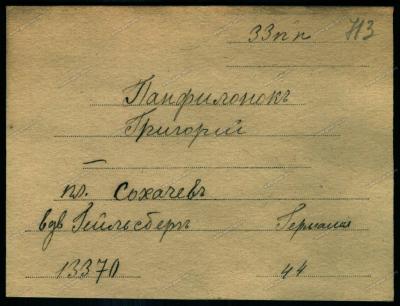 33 п'п 713
Панфилонокъ
Григорий
—
пл. Сохачевъ
вдв Гейльсбергъ Германия
13370 44